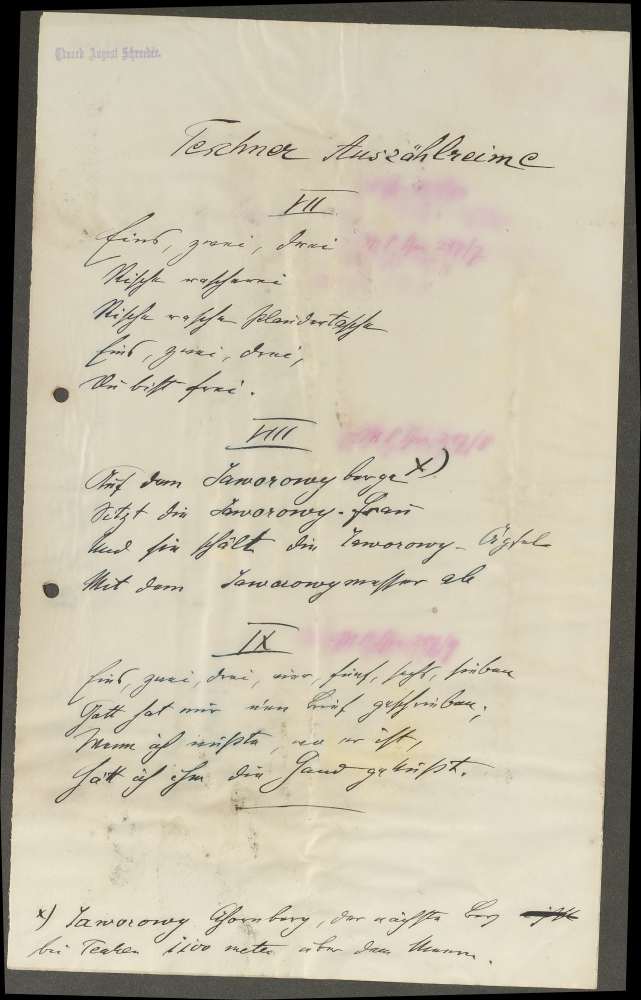 Eduard August Schroeder.
Teschner Auszählreime
VII
Eins, zwei, drei
Rische rascherei
Rische rasche Plaudertasche
Eins, zwei, drei,
Du bist frei.
VIII
Auf dem Jaworowy berge x)
Sitzt die Jaworowy-Frau
Und sie schält die Jaworowy-Äpfel
Mit dem Jaworowymesser ab
IX
Eins, zwei, drei, vier, fünf, sechs, sieben
Gott hat mir nen Brief geschrieben;
Wenn ich wüßte, wo er ist,
Hätt ich ihm die Hand geküßt.
x) Jaworowy Ahornberg, der nächste Berg
bei Teschen 1100 meter über dem Meere.